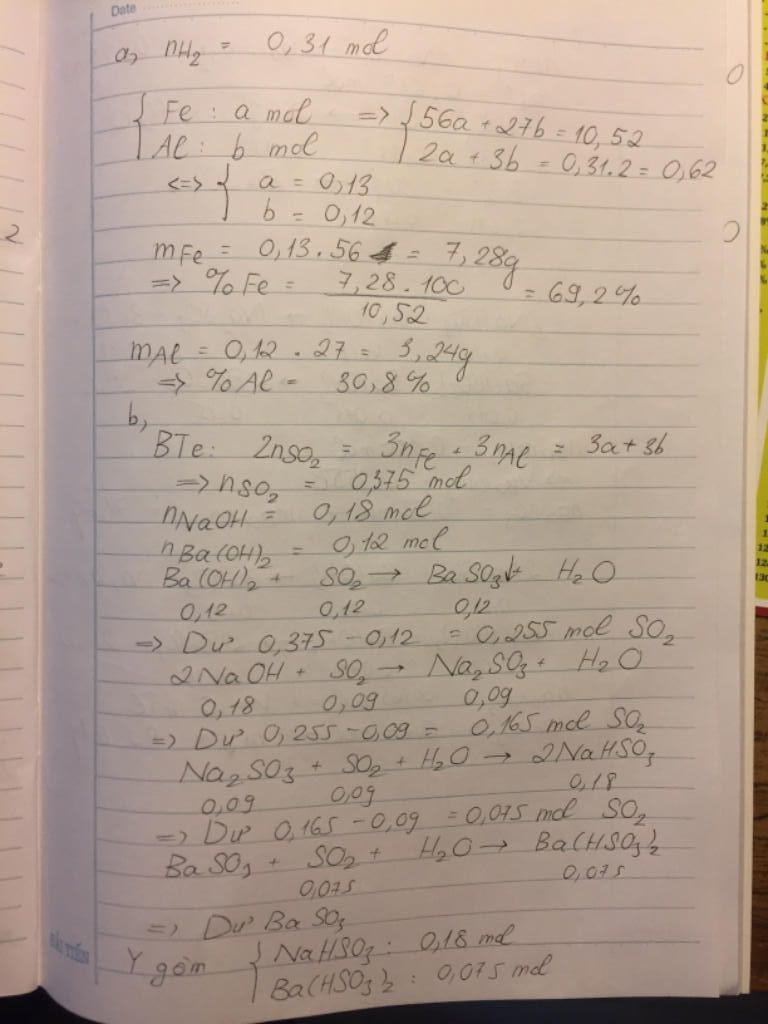 Date
a, nH₂ = 0,31 mol
{ Fe : a mol => { 56a + 27b = 10,52
Al : b mol 2a + 3b = 0,31.2 = 0,62
<=> { a = 0,13
b = 0,12
mFe = 0,13 . 56 = 7,28g
=> %Fe = 7,28 . 100 / 10,52 = 69,2%
mAl = 0,12 . 27 = 3,24g
=> %Al = 30,8%
b,
BTe: 2nSO₂ = 3nFe + 3nAl = 3a + 3b
=> nSO₂ = 0,375 mol
nNaOH = 0,18 mol
nBa(OH)₂ = 0,12 mol
Ba(OH)₂ + SO₂ → BaSO₃↓ + H₂O
0,12 0,12 0,12
=> Dư 0,375 - 0,12 = 0,255 mol SO₂
2NaOH + SO₂ → Na₂SO₃ + H₂O
0,18 0,09 0,09
=> Dư 0,255 - 0,09 = 0,165 mol SO₂
Na₂SO₃ + SO₂ + H₂O → 2NaHSO₃
0,09 0,09 0,18
=> Dư 0,165 - 0,09 = 0,075 mol SO₂
BaSO₃ + SO₂ + H₂O → Ba(HSO₃)₂
0,075 0,075
=> Dư BaSO₃
Y gồm { NaHSO₃ : 0,18 mol
Ba(HSO₃)₂ : 0,075 mol
2